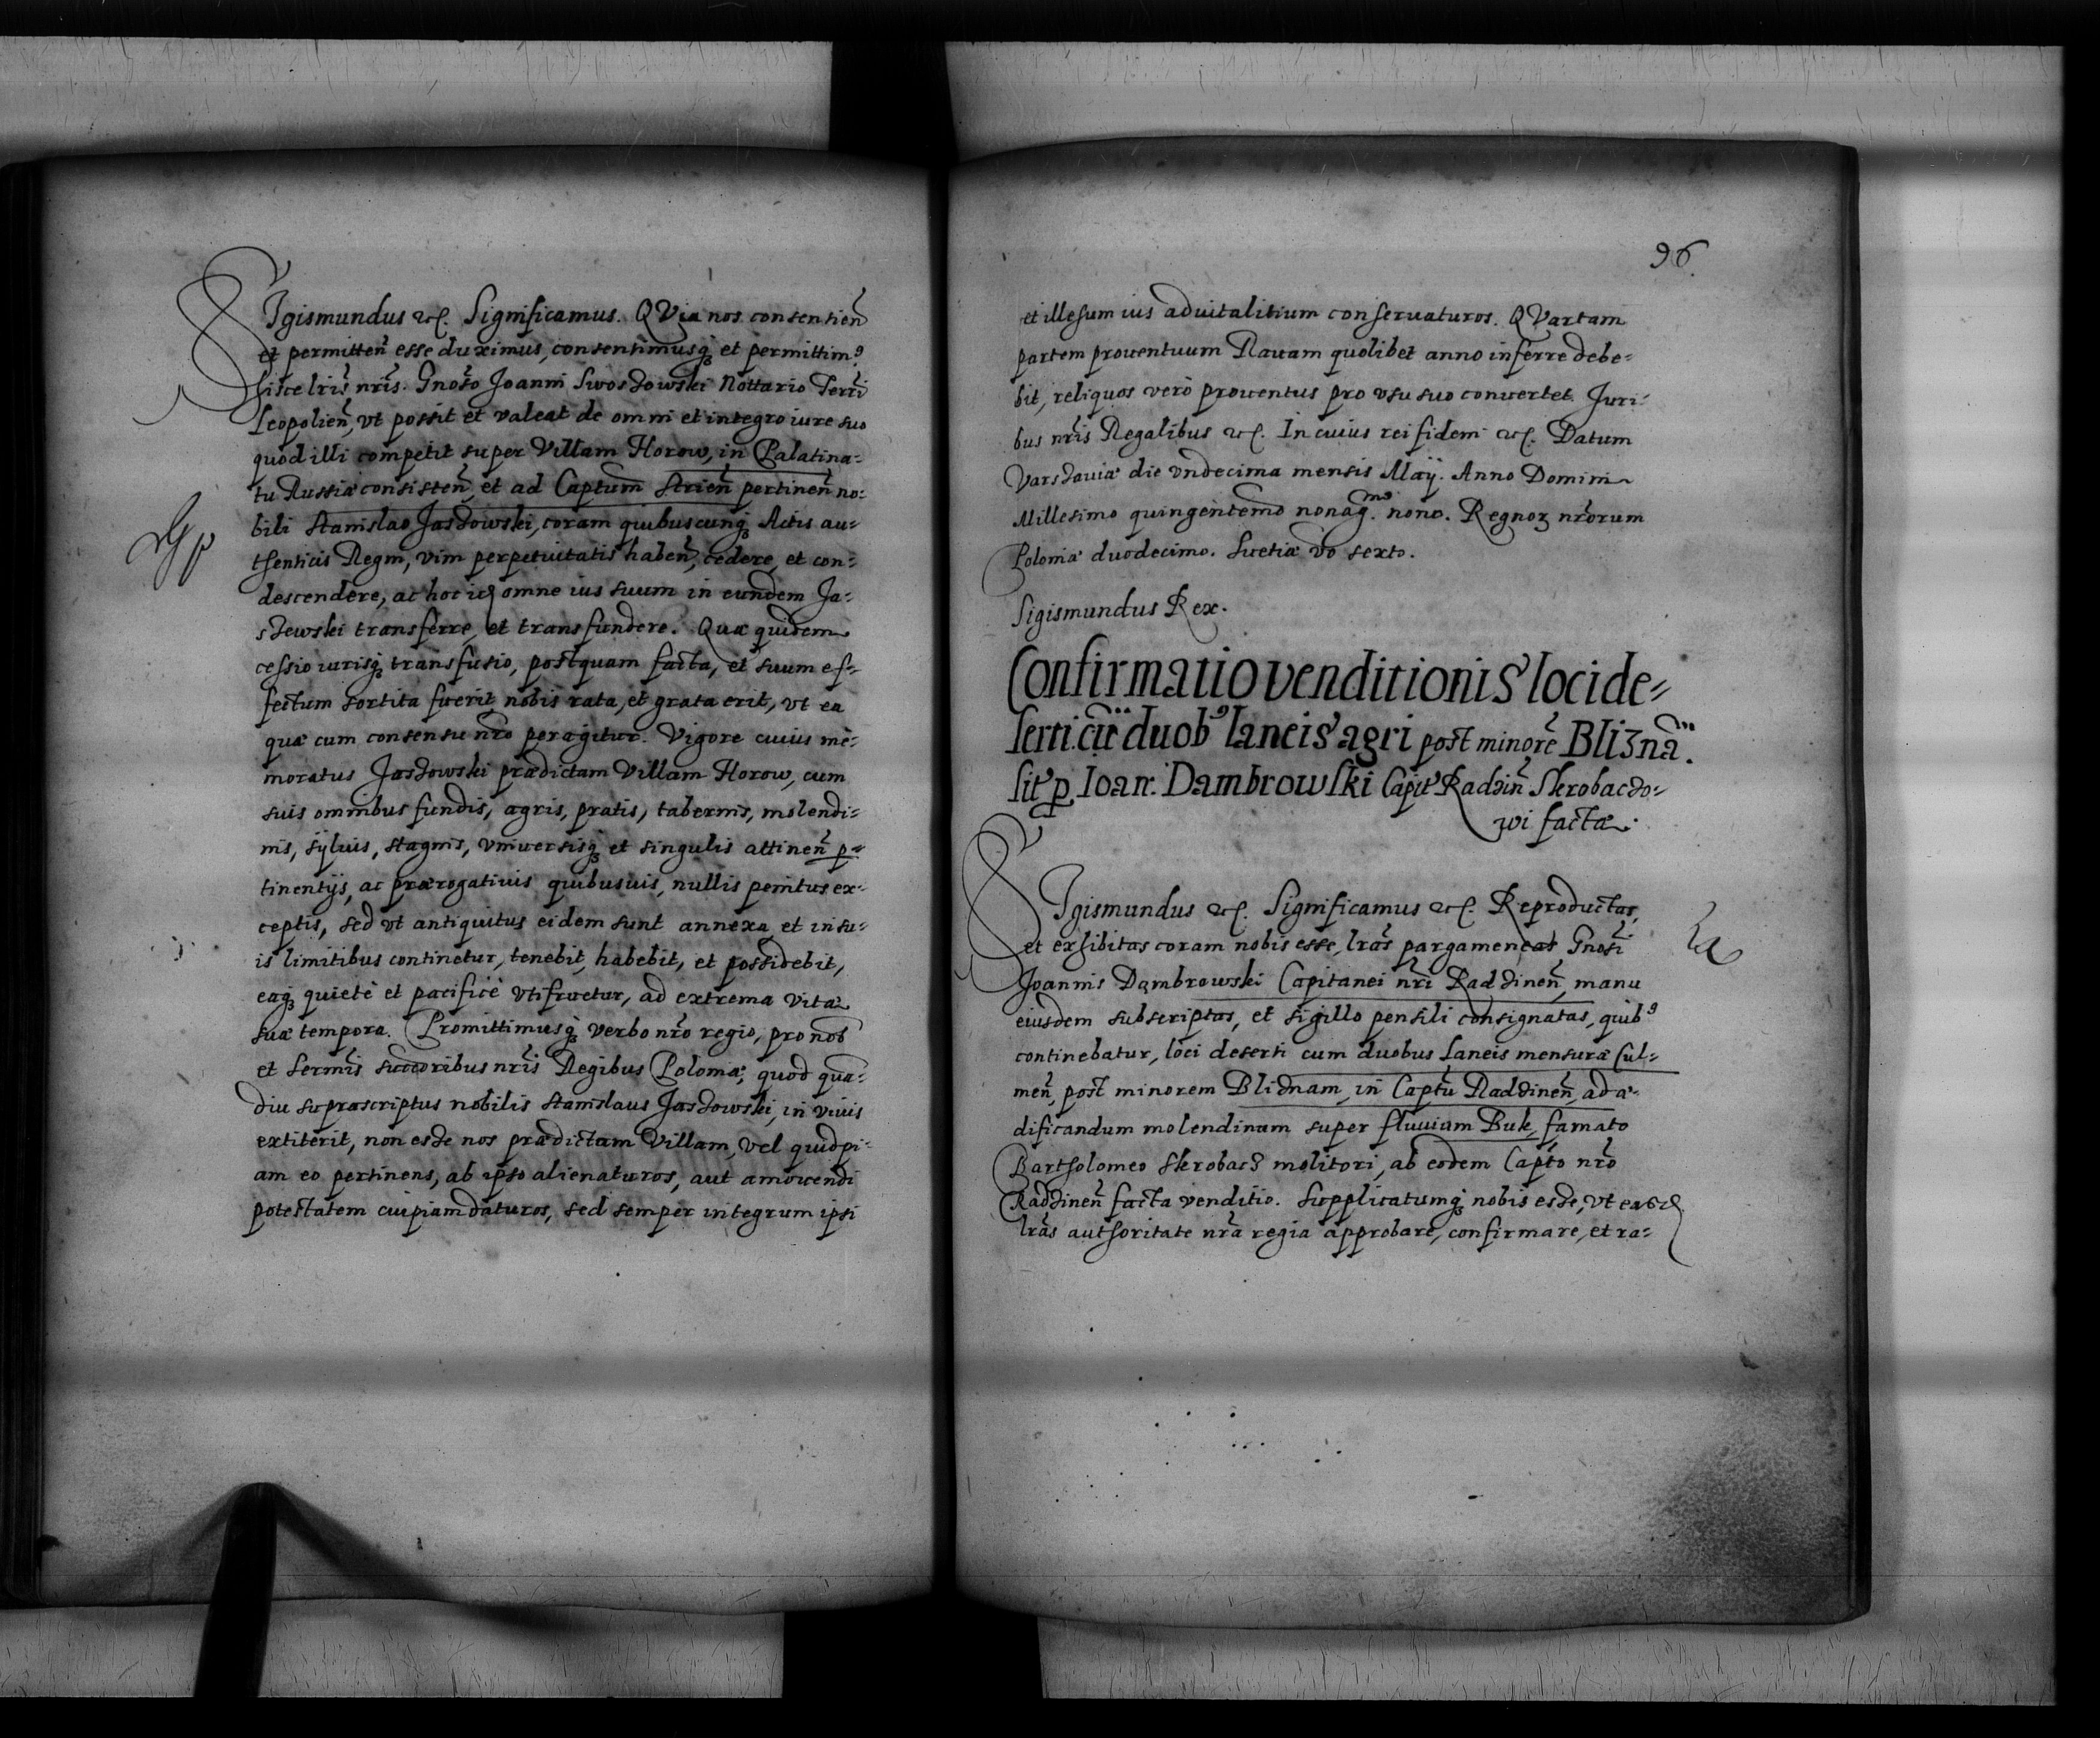 SIgismundus etc. Significamus. QVia nos consentien̄
et permitten̄ esse duximus, consentimusq́ꝫ et permittimꝰ
hisce lr̄is nr̄is. Gnoso Joanni Swoszowski Nottario Terrī
Leopolien̄, vt possit et valeat de omni et integro iure suo
quod illi competit super Villam Horow, in Palatina-
tu Russiæ consisten̄, et ad Captum̄ Strien̄ pertinen̄ no-
bili Stanislao Jaszowski, coram quibuscunq́ꝫ Actis au-
thenticis Regni, vim perpetuitatis haben̄, cedere, et con-
descendere, ac hoc id omne ius suum in eundem Ja-
szewski transferre, et transfundere. Quæ quidem
cessio iurisq́ꝫ transfusio, postquam facta, et suum ef-
fectum sortita fuerit nobis rata, et grata erit, vt ea
quæ cum consensu nr̄o peragitur. Vigore cuius me-
moratus Jaszowski prædictam Villam Horow, cum
suis omnibus fundis, agris, pratis, tabernis, molendi-
nis, syluis, stagnis, vniuersisq́ꝫ et singulis attinen̄ p-
tinentijs, ac prærogatiuis quibusuis, nullis penitus ex-
ceptis, sed vt antiquitus eidem sunt annexa et in su-
is limitibus continetur, tenebit, habebit, et possidebit,
eaq́ꝫ quietè et pacificè vtifruetur, ad extrema vitæ
suæ tempora. Promittimusq́ꝫ verbo nr̄o regio, pro nob̄
et Serm̄is succ̄oribus nr̄is Regibus Poloniæ, quod qua-
diu suprascriptus nobilis Stanislaus Jaszowski, in viuis
extiterit, non esse nos prædictam Villam, vel quidpi-
am eo pertinens, ab ipso alienaturos, aut amouendi
potestatem cuipiam daturos, sed semper integrum ipsi
96.
et illesum ius aduitalitium conseruaturos. QVartam
partem prouentuum Rauam quolibet anno inferre debe-
bit, reliquos verò prouentus pro vsu suo conuertet. Juri-
bus nr̄is Regalibus etc. In cuius rei fidem etc. Datum
Varszauiæ die vndecima mensis Maij. Anno Domini
Millesimo quingentemō nonag.mo nono. Regnoꝝ nr̄orum
Poloniæ duodecimo. Suetiæ v̄o sexto.
Sigismundus Rex.
Confirmatio venditionis loci de-
serti cū duobꝰ laneis agri post minorē Bliznā
sit ꝑ Ioan: Dambrowski Capit̄ Radzin̄ Skrobaczo-
wi facta.
SIgismundus etc. Significamus etc. Reproductas,
et exhibitas coram nobis esse, lr̄as pargameneas Gnosi
Joannis Dambrowski Capitanei nr̄i Radzinen̄, manu
eiusdem subscriptas, et sigillo pensili consignatas, quibꝰ
continebatur, loci deserti cum duobus Laneis mensuræ Cul-
men̄, post minorem Bliznam, in Captū Radzinen̄, ad æ-
dificandum molendinum super fluuium Buk, famato
Bartholomeo Skrobacz molitori, ab eodem Capto nr̄o
Radzinen̄ facta venditio. Supplicatumq́ꝫ nobis esse, vt easd
lr̄as authoritate nr̄a regia approbare, confirmare, et ra-